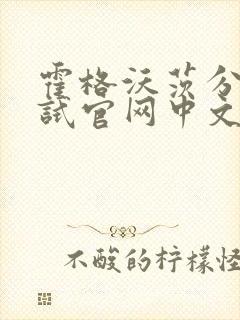 霍格沃茨分
试官网中文
不酸的柠檬怪